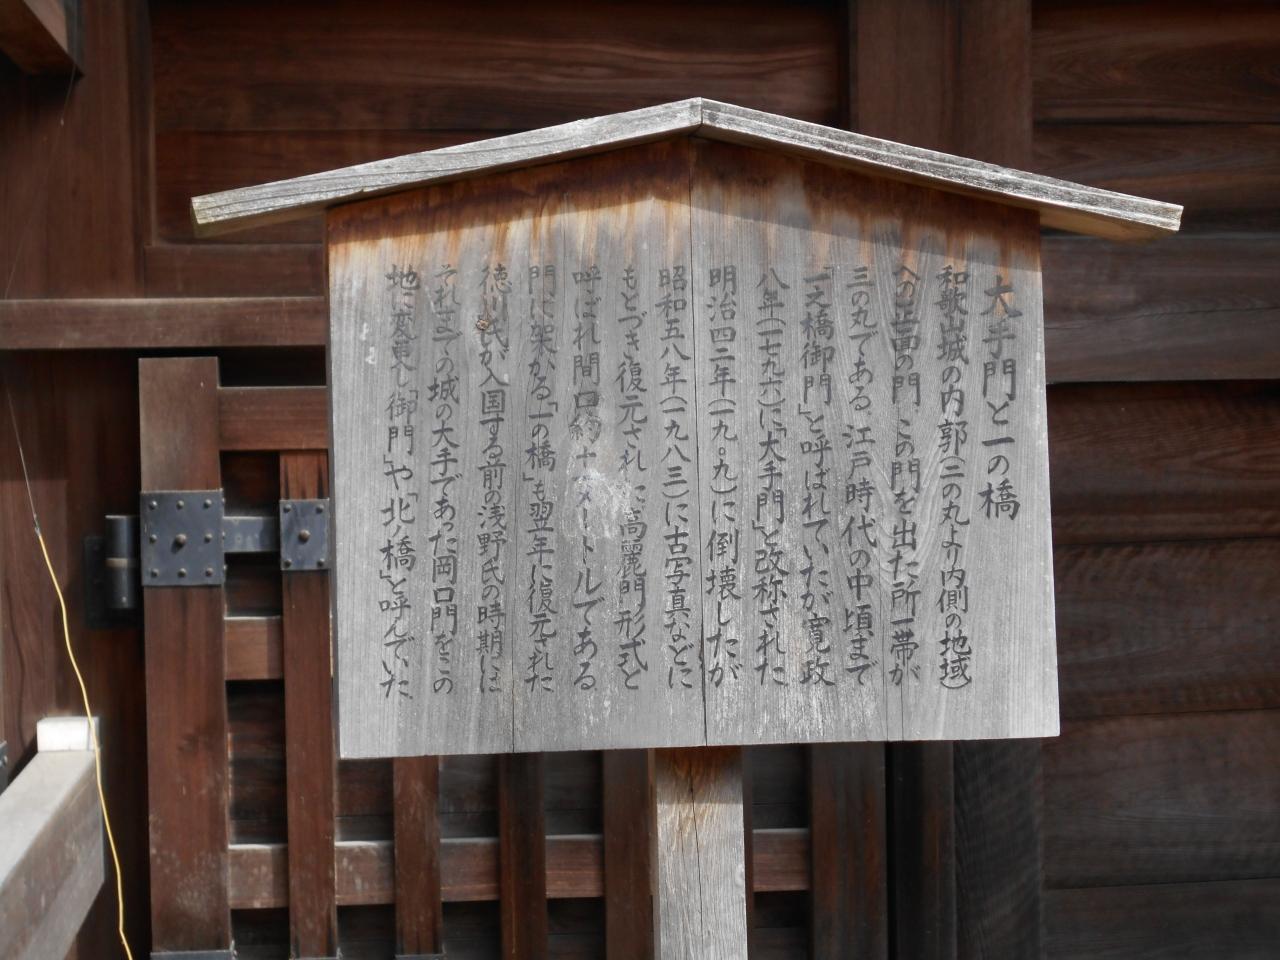 大手門と一の橋
和歌山城の内郭(二の丸より内側の地域)
への正面の門、この門を出た所一帯が
三の丸である、江戸時代の中頃まで
「一之橋御門」と呼ばれていたが寛政
八年(一七九六)に「大手門」と改称された
明治四二年(一九〇九)に倒壊したが
昭和五八年(一九八三)に古写真などに
もとづき復元された高麗門形式と
呼ばれ間口約十 メートルである
門に架かる「一の橋」も翌年に復元された
徳川氏が入国する前の浅野氏の時期には
それまでの城の大手であった岡口門をこの
地に変更し「御門」や「北ノ橋」と呼んでいた、